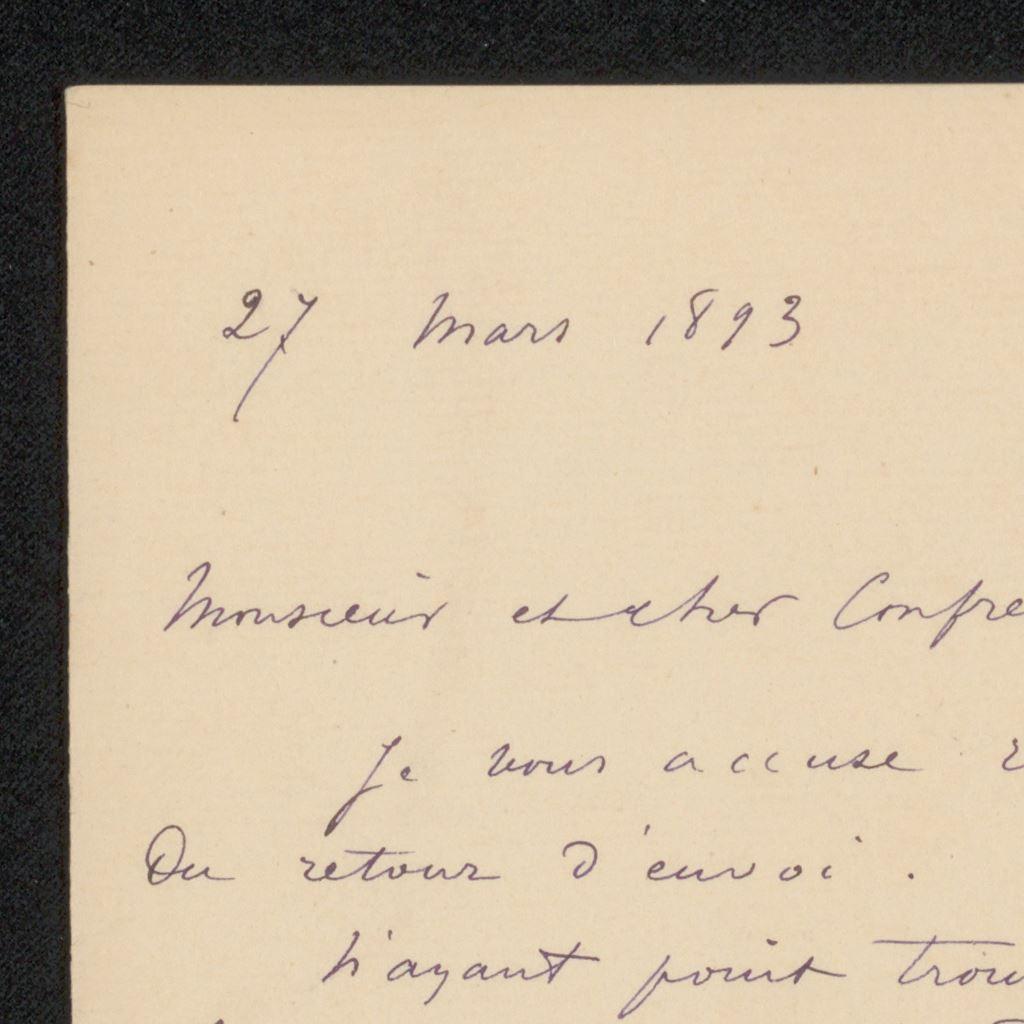 27 Mars 1893
Monsieur et cher Confre
Je vous accuse r
Du retour d'envoi .
N'ayant point trou